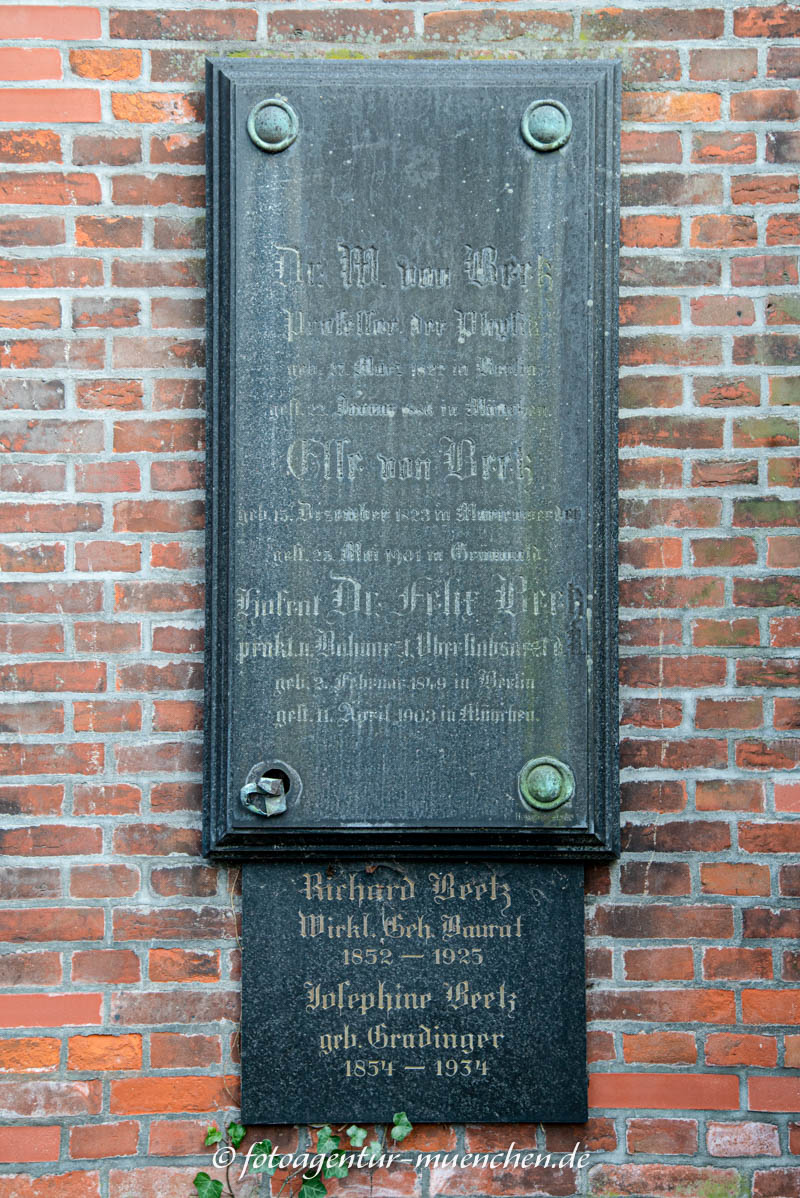 Dr. W. von Beetz
Professor der Physik
geb. 27. März 1822 in Berlin
gest. 22. Januar 1886 in München.
Else von Beetz
geb. 15. Dezember 1823 in Marienwerder
gest. 25. Mai 1901 in Grünwald.
Hofrat Dr. Felix Beetz
prakt. u. Bahnarzt, Oberstabsarzt d.
geb. 2. Februar 1849 in Berlin
gest. 11. April 1903 in München.
Richard Beetz
Wirkl. Geh. Baurat
1852 — 1925
Josephine Beetz
geb. Gradinger
1854 — 1934
© fotoagentur-muenchen.de